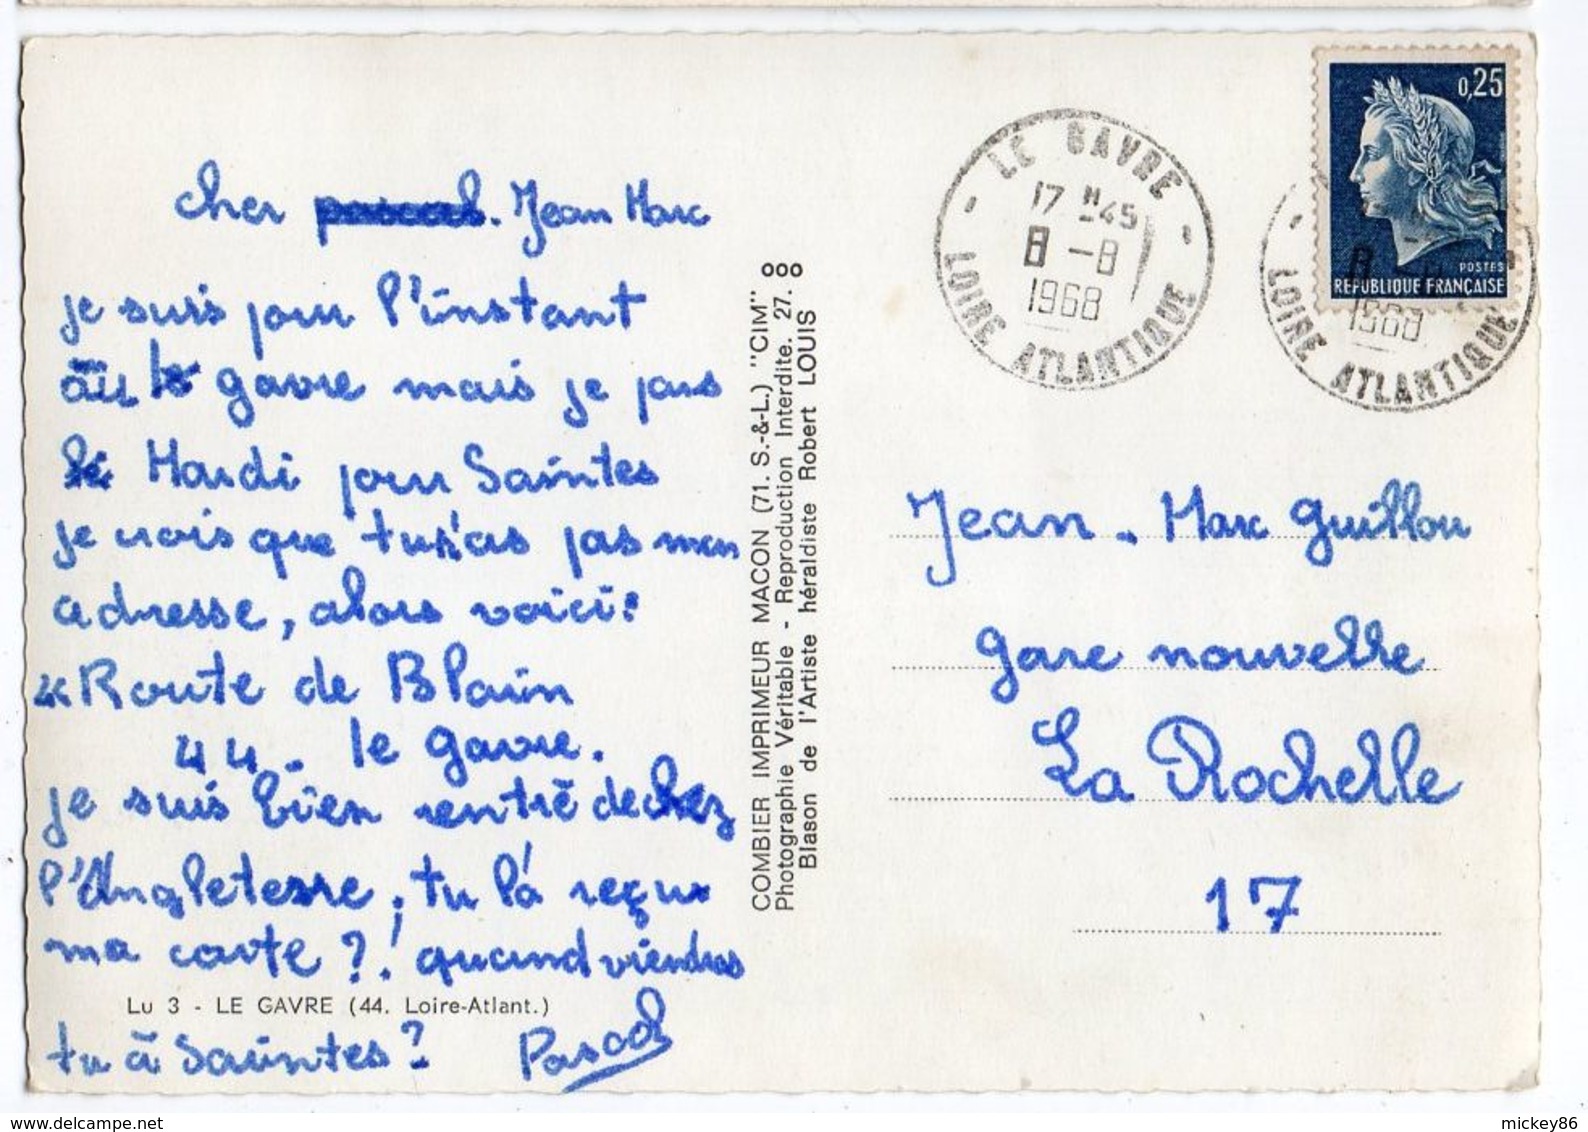 cher pascal. Jean Marc
je suis pour l'instant
au le gavre mais je pars
le Mardi pour Saintes
je crois que tu n'as pas mon
adresse, alors voici:
Route de Blain
44. le gavre.
je suis bien rentré de chez
l'Angleterre, tu l'a reçu
ma carte ?! quand viendras
Lu 3 - LE GAVRE (44. Loire-Atlant.)
tu à Saintes ? Pascal
COMBIER IMPRIMEUR MACON (71. S.-&-L.) "CIM" ooo
Photographie Véritable - Reproduction Interdite. 27.
Blason de l'Artiste héraldiste Robert LOUIS
LE GAVRE
17 H 45
8 - 8
1968
LOIRE ATLANTIQUE
0,25
POSTES
REPUBLIQUE FRANÇAISE
8
1968
LOIRE ATLANTIQUE
Jean-Marc Guillou
gare nouvelle
La Rochelle
17
mickey86